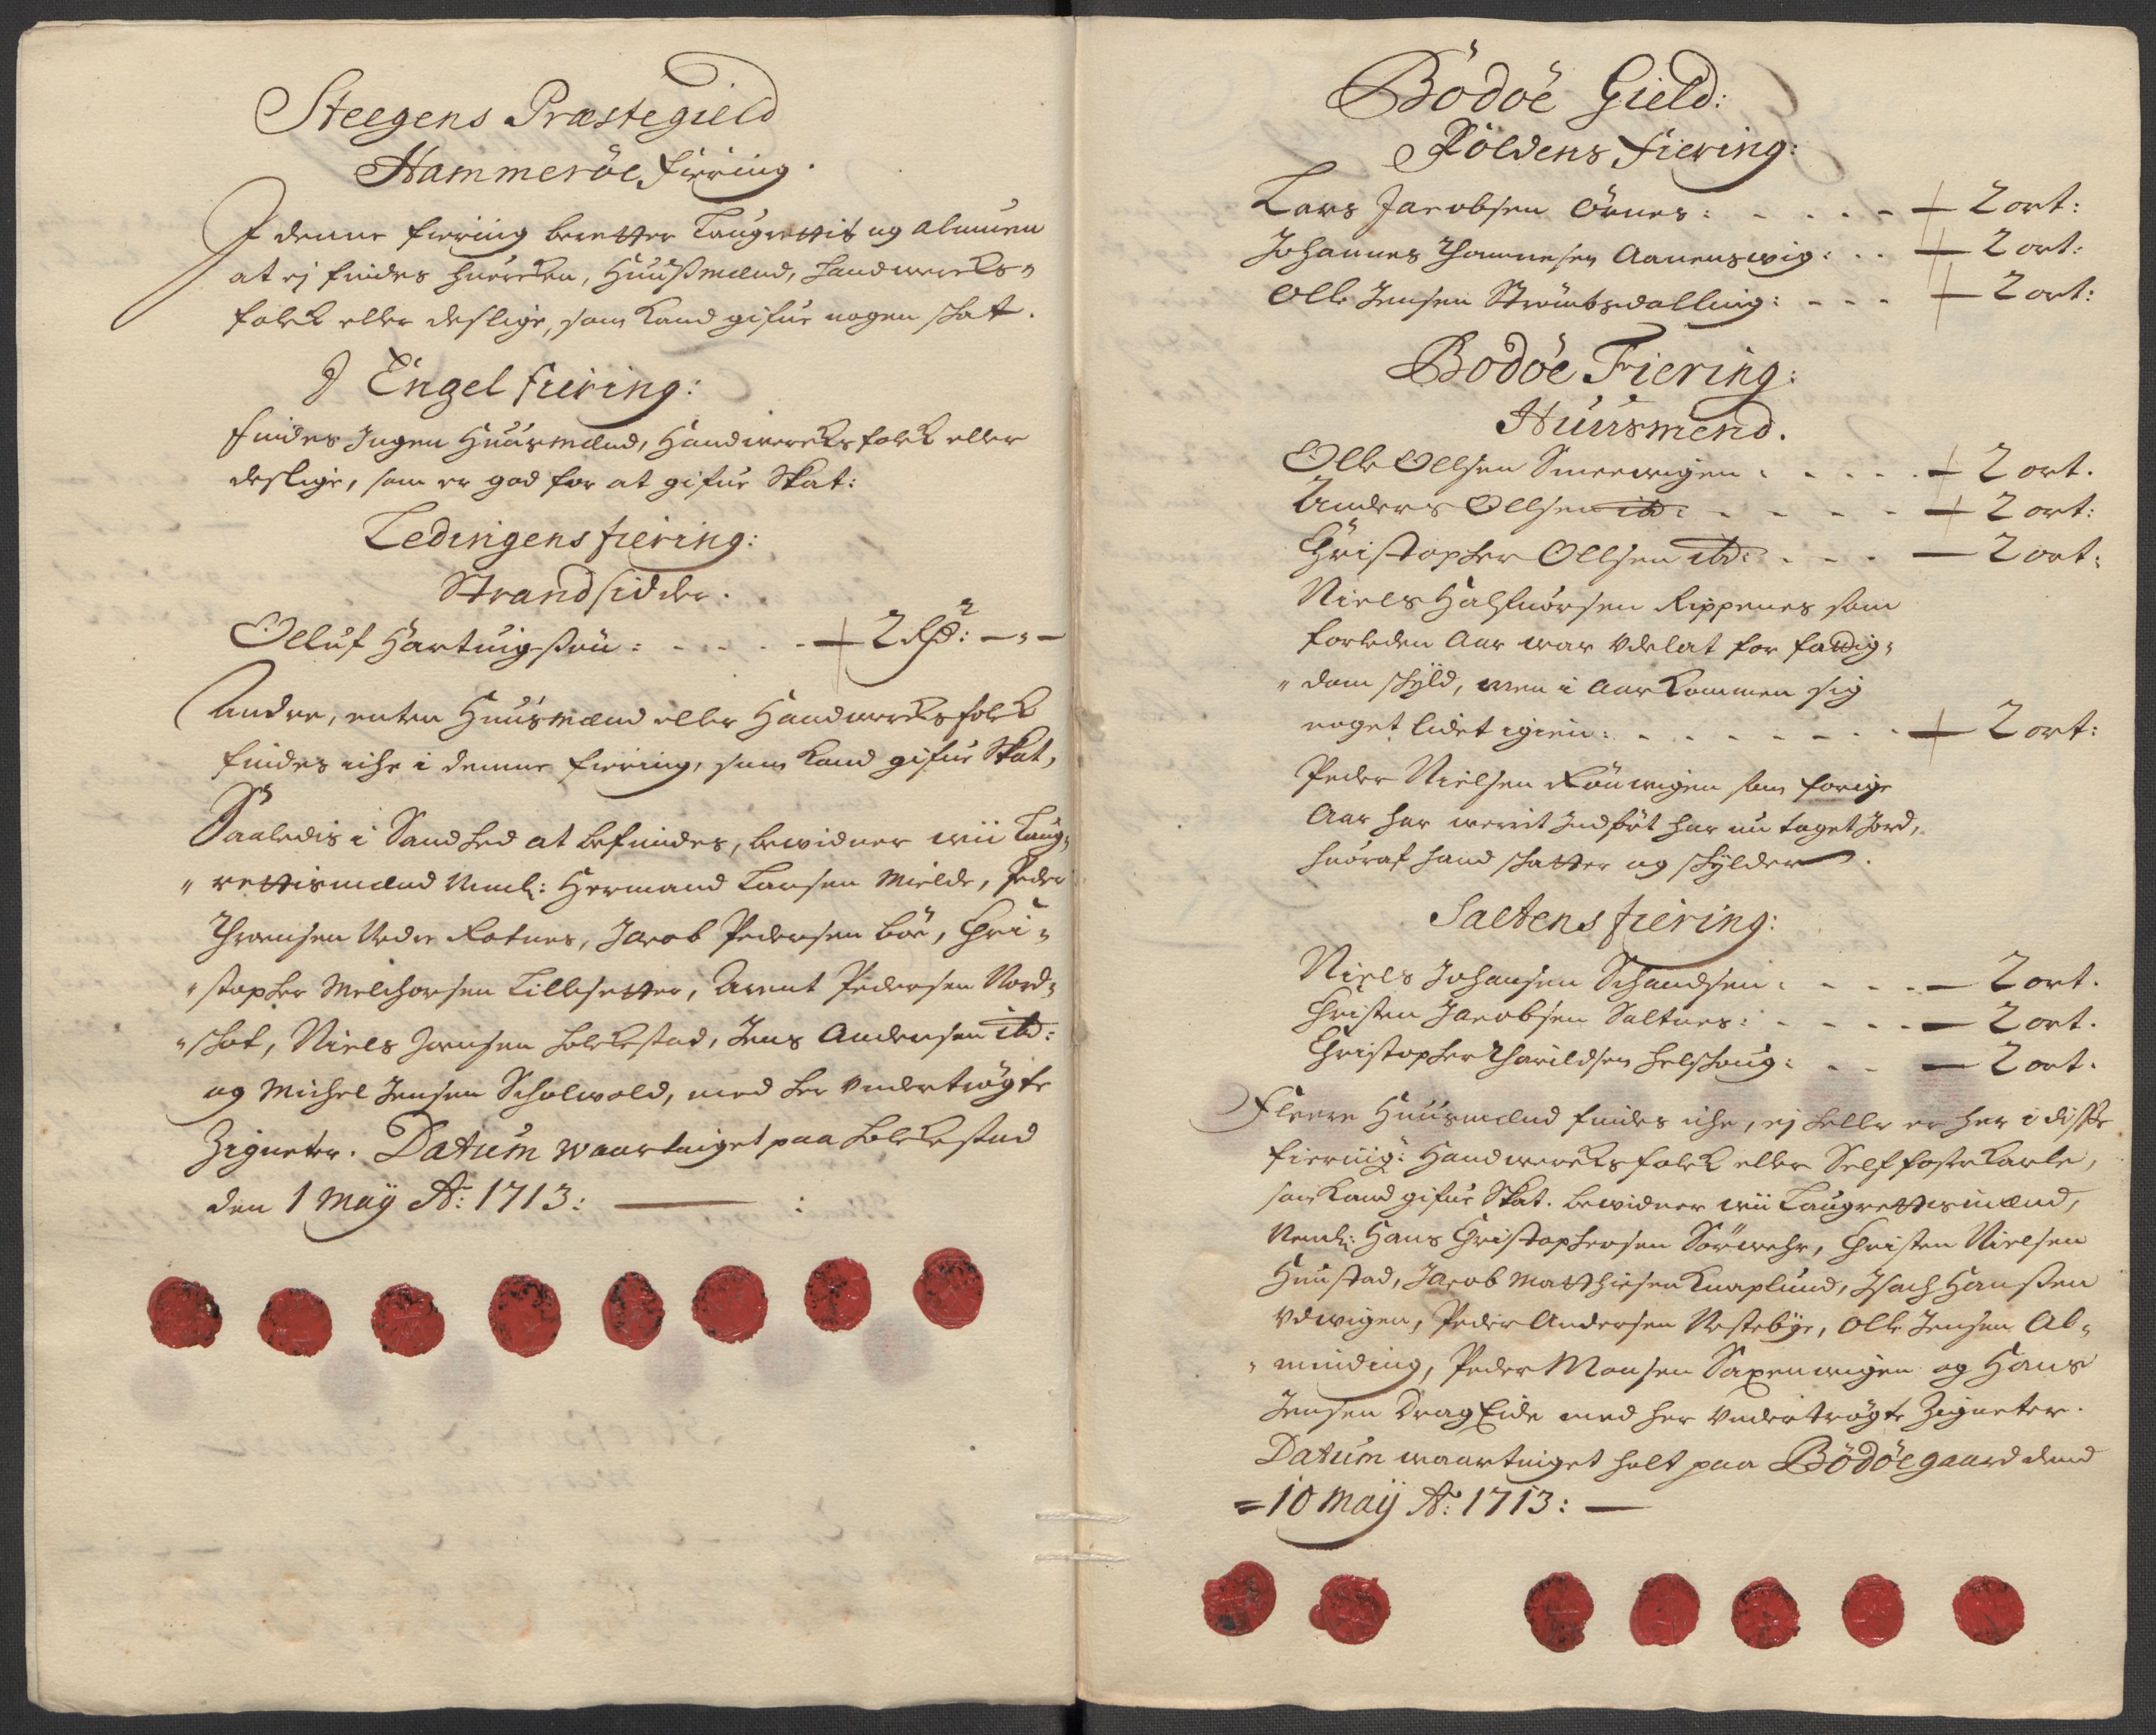 Steegens Præstegield
Hammeröe fiering.
I denne fiering beretter Laugrettit og almuen
at ej findes huercken, Huußmænd, handwercks„
folck eller deslige, som kand gifue nogen skat.
I Engel fiering:
findes Ingen Huusmænd, Handwercksfolck eller
deslige, som er god for at gifue Skat:
Ledingens fiering:
Strandsidder.
Olluf Hartuigßøn: - - - - - 2 Rd: -„-
Andre, enten Huusmænd eller Handwercksfolck
findes iche i denne fiering, som kand gifue Skat,
Saaledis i Sandhed at befindes, bewidner wii Laug„
„rettismænd Neml: Hermand Larsen Mielde, Peder
Thomesen Nedre Rotnes, Jacob Pedersen Böe, Chri„
„stopher Melchorsen Lillesetter, Arent Pedersen Nord„
„skot, Niels Jensen holckestad, Jens Andersen ibd:
og Michel Jensen Scholwold, med her undertrögte
Zigneter. Datum waartinget paa holckestad
den 1 Maÿ A: 1713: :
Bödöe Gield:
Földens fiering:
Lars Jacobsen Örnes: - - - - - 2 ort:
Johannes Thommesen Aanenswig: - - 2 ort:
Olle Jensen Strömbsdalling: - - - 2 ort:
Bodöe Fiering:
Huusmend.
Olle Ollsen Sneewigen - - - - 2 ort.
Anders Ollsen ibd: - - - - - 2 ort:
Christopher Ollsen ibd: - - - 2 ort:
Niels Halfuorsen Rippenes som
forleden Aar war Udelat for fattig„
„dom skÿld, men i aar kommen sig
noget lidet igien: - - - - - - - 2 ort:
Peder Nielsen Rönwigen som forige
Aar har werit Indfört har nu taget Jord,
huoraf hand skatter og skÿlder.
Saltens fiering:
Niels Johansen Schandsen: - - - 2 ort.
Christen Jacobsen Saltnes: - - - - 2 ort.
Christopher Tharildsen helshoug: - - 2 ort.
Fleere Huusmænd findes iche, ej heller er her i disse
fiering: Handwercksfolck eller Selffosterkarle,
som kand gifue Skat. bewidner wii Laugrettismænd,
Neml: Hans Christophersen Sörwehr, Christen Nielsen
Huustad, Jacob Matthiesen Knaplund, Isach Hanßen
Udwigen, Peder Andersen Nestebÿe, Olle Jensen Al„
„minding, Peder Monsen Saxenwigen og Hans
Jensen Drageide med her undertrögte Zigneter.
Datum waartinget holt paa Bödöegaard dend
=10 Maij A: 1713: